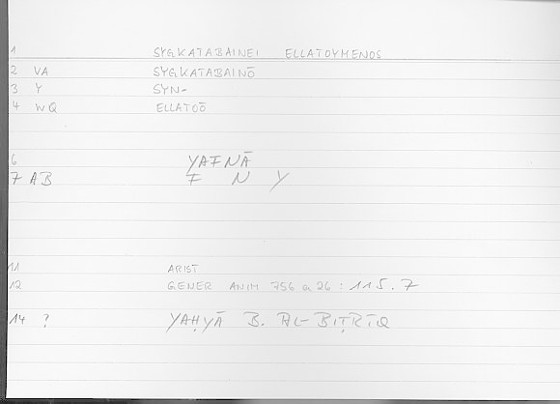 1 SYGKATABAINEI ELLATOYMENOS
2 VA SYGKATABAINŌ
3 Y SYN-
4 WQ ELLATOŌ
6 YAFNĀ
7 AB F N Y
11 ARIST
12 GENER ANIM 756 a 26 : 115.7
14 ? YAḤYĀ B. AL-BIṬRĪQ